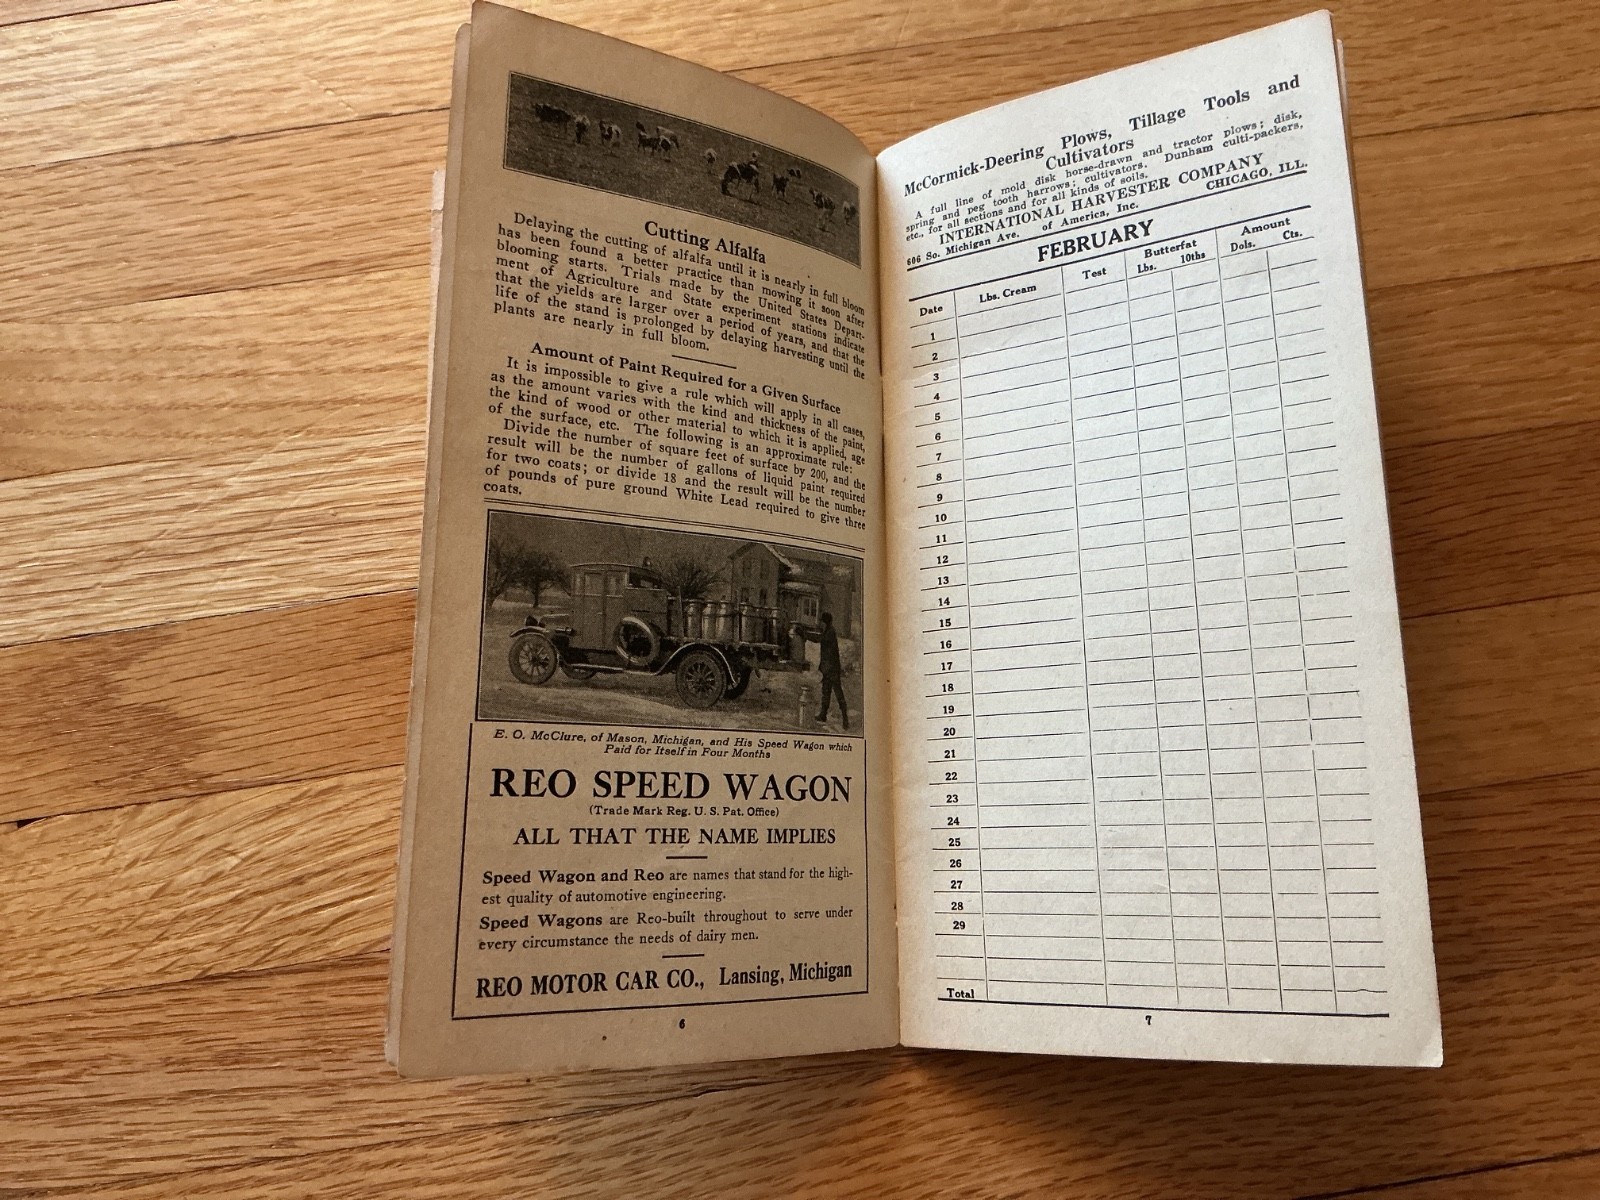 Cutting Alfalfa
Delaying the cutting of alfalfa until it is nearly in full bloom
has been found a better practice than mowing it soon after
blooming starts. Trials made by the United States Depart-
ment of Agriculture and State experiment stations indicate
that the yields are larger over a period of years, and that the
life of the stand is prolonged by delaying harvesting until the
plants are nearly in full bloom.
Amount of Paint Required for a Given Surface
It is impossible to give a rule which will apply in all cases,
as the amount varies with the kind and thickness of the paint,
the kind of wood or other material to which it is applied, age
of the surface, etc. The following is an approximate rule:
Divide the number of square feet of surface by 200, and the
result will be the number of gallons of liquid paint required
for two coats; or divide 18 and the result will be the number
of pounds of pure ground White Lead required to give three
coats.
E. O. McClure, of Mason, Michigan, and His Speed Wagon which
Paid for Itself in Four Months
REO SPEED WAGON
(Trade Mark Reg. U. S. Pat. Office)
ALL THAT THE NAME IMPLIES
Speed Wagon and Reo are names that stand for the high-
est quality of automotive engineering.
Speed Wagons are Reo-built throughout to serve under
every circumstance the needs of dairy men.
REO MOTOR CAR CO., Lansing, Michigan
6
McCormick-Deering Plows, Tillage Tools and
Cultivators
A full line of mold disk horse-drawn and tractor plows; disk,
spring and peg tooth harrows; cultivators. Dunham culti-packers,
etc., for all sections and for all kinds of soils.
INTERNATIONAL HARVESTER COMPANY
606 So. Michigan Ave. of America, Inc. CHICAGO, ILL.
FEBRUARY
Date Lbs. Cream Test Butterfat Amount
Lbs. 10ths Dols. Cts.
1
2
3
4
5
6
7
8
9
10
11
12
13
14
15
16
17
18
19
20
21
22
23
24
25
26
27
28
29
Total
7